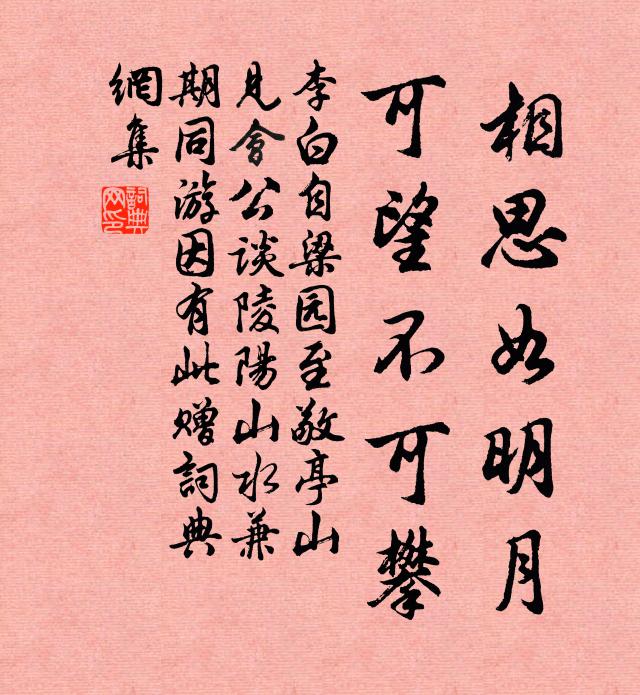 相思如明月
可望不可攀
李白自梁园至敬亭山
見會公谈陵陽山水兼
期同游因有此赠詞典
網集
詞典網印